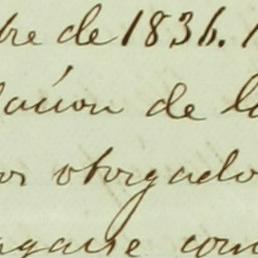 bre de 1836.
lacion de l
os otorgado
ngase com